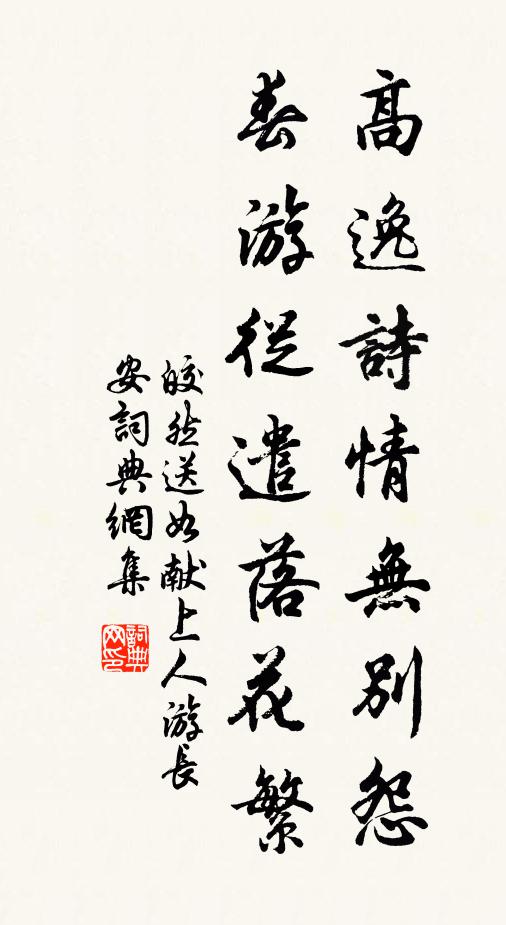 高逸詩情無別怨
春游從遣落花繁
皎然送如献上人游長
安詞典網集
詞典
网印